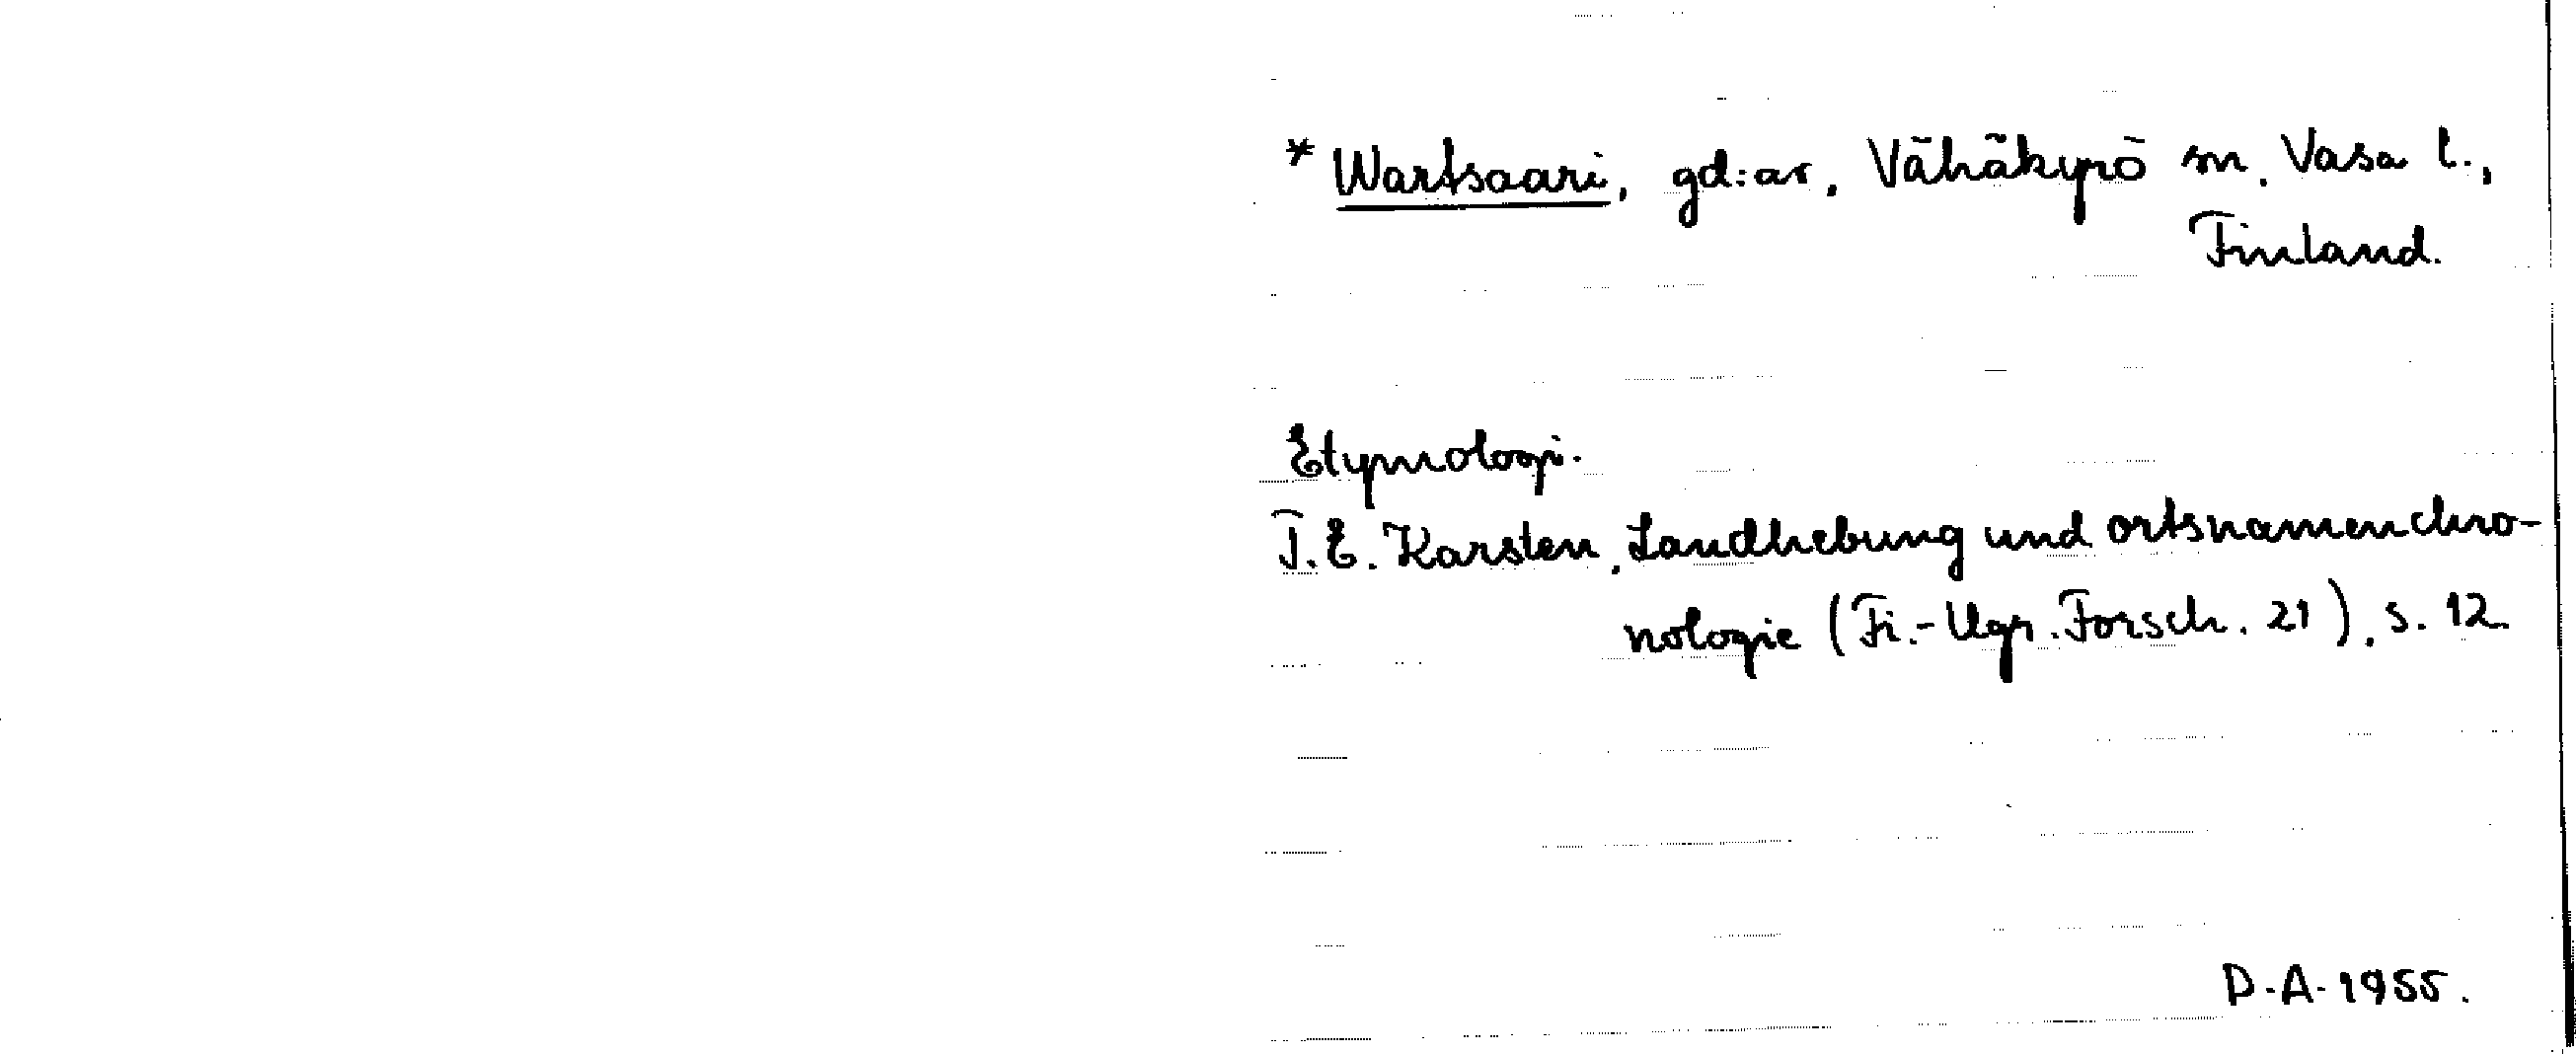 * Wartsaari, gd:ar, Vähäkyrö sn, Vasa l.,
Finland.
Etymologi.
T.E. Karsten, Landhebung und ortsnamenchro-
nologie (Fi.-Ugr. Forsch. 21), s. 12.
D.A. 1955.